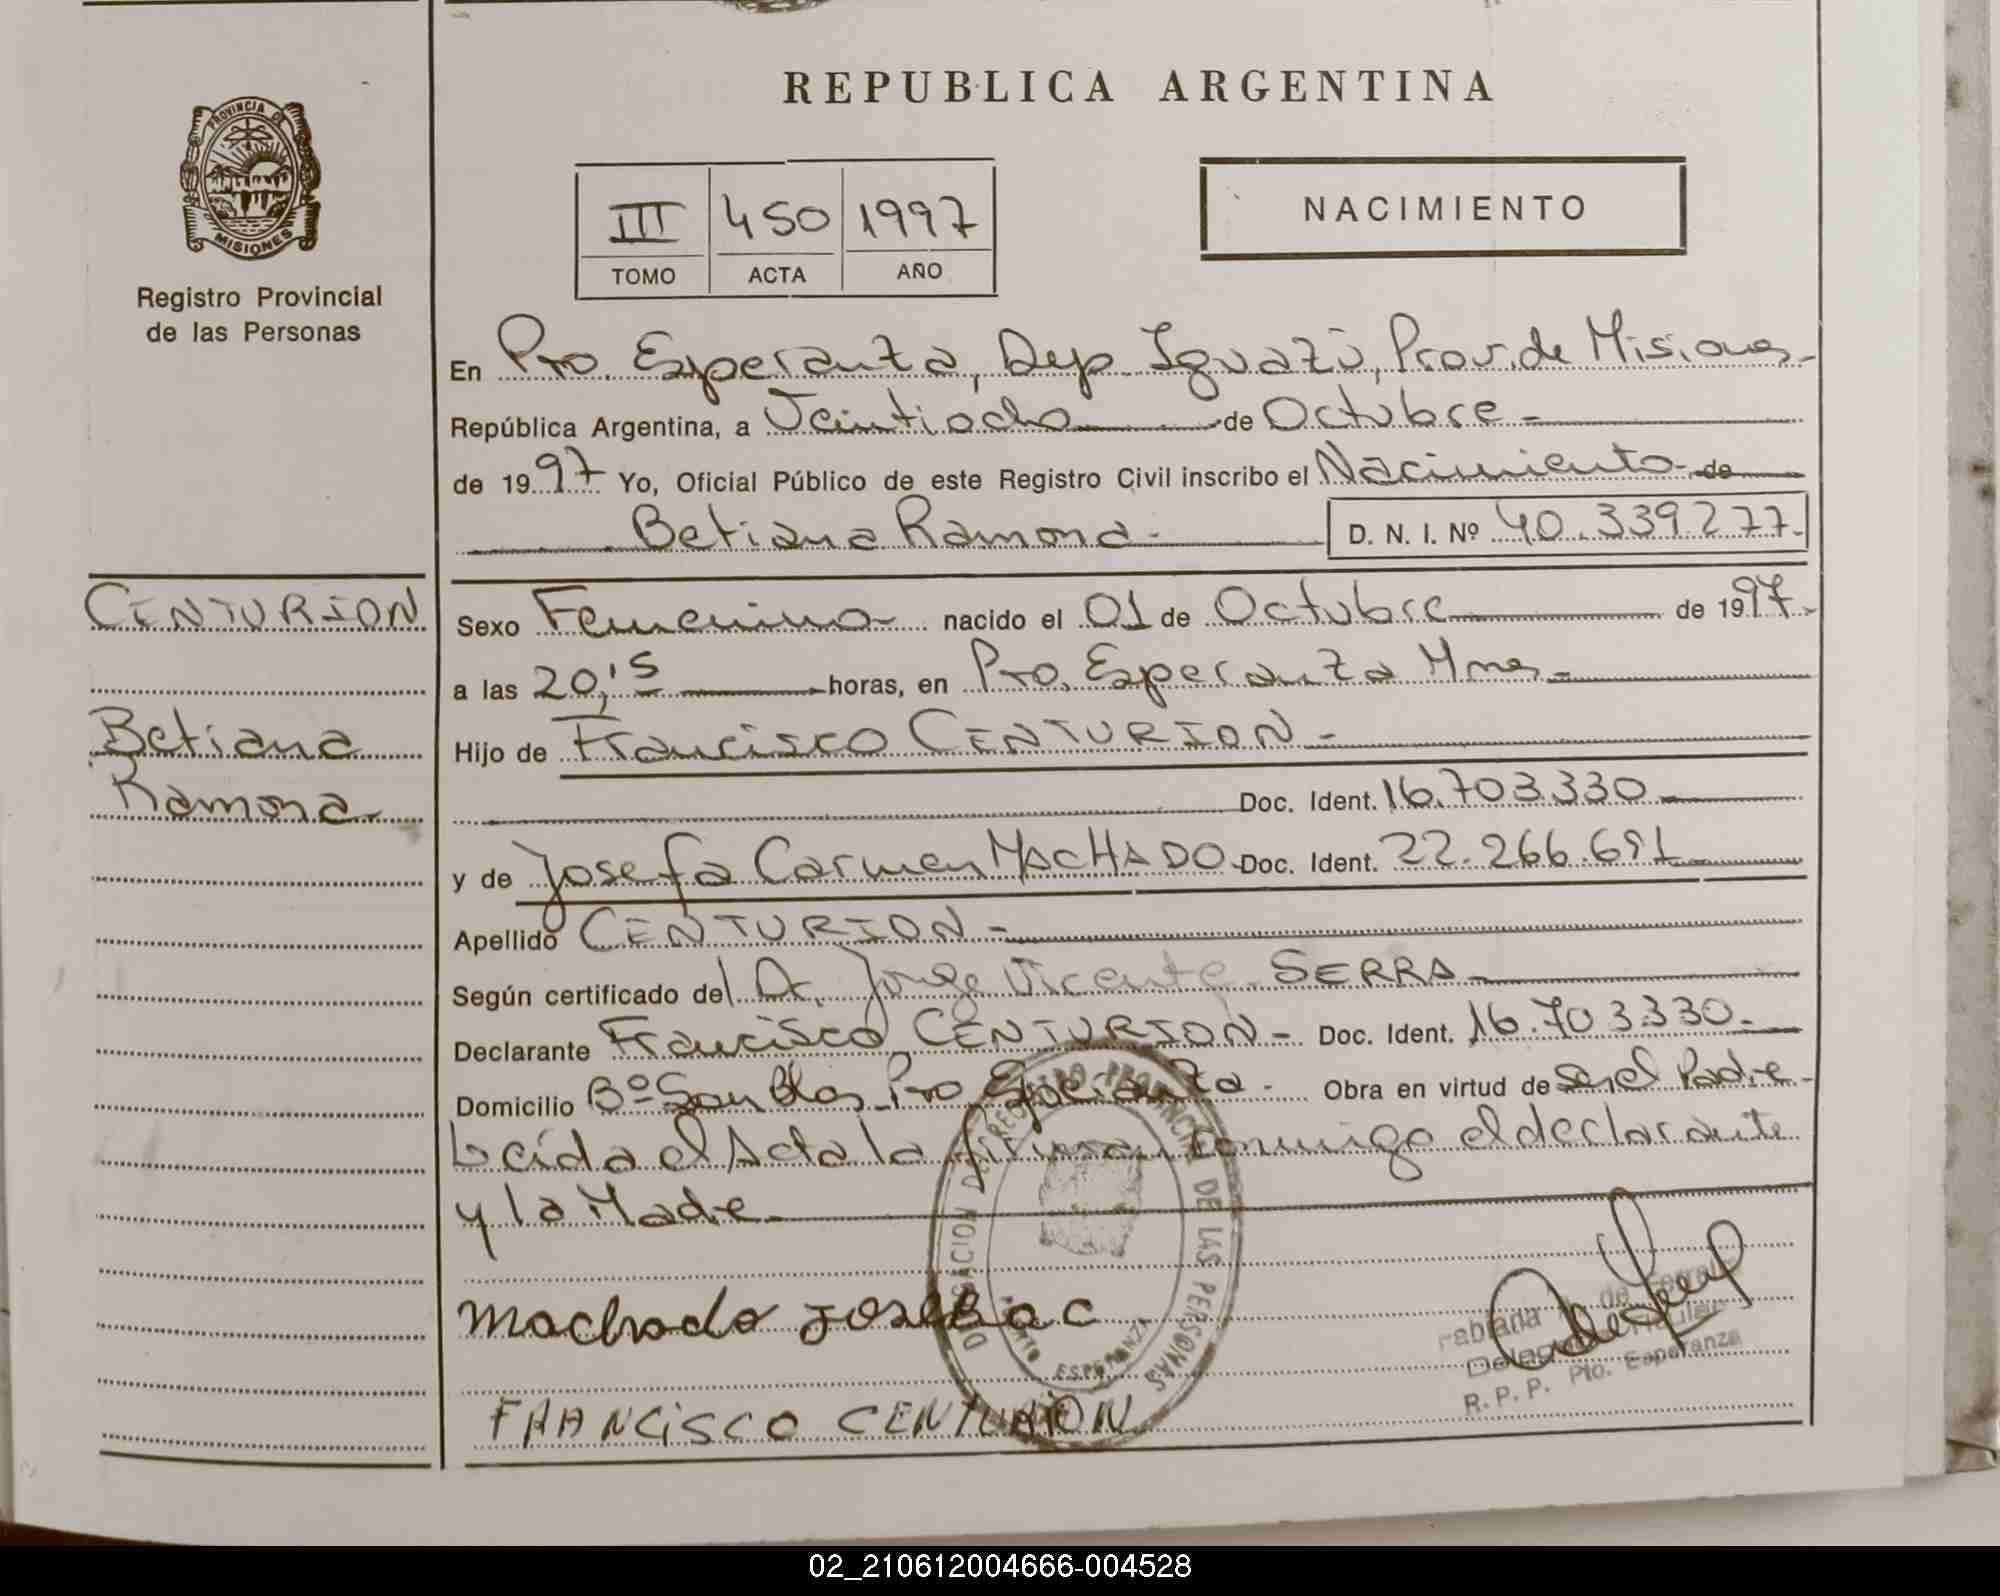 REPUBLICA ARGENTINA
PROVINCIA DE
MISIONES
Registro Provincial
de las Personas
III 450 1997
TOMO ACTA AÑO
NACIMIENTO
En Pto. Esperanza, Dep. Iguazú, Prov. de Misiones-
República Argentina, a Veintiocho de Octubre-
de 1997 Yo, Oficial Público de este Registro Civil inscribo el Nacimiento de
Betiana Ramona- D. N. I. Nº 40.339.277.-
CENTURION
Betiana
Ramona-
Sexo Femenino nacido el 01 de Octubre de 1997-
a las 20,15 horas, en Pto. Esperanza Mnes-
Hijo de Francisco CENTURION-
Doc. Ident. 16.703.330-
y de Josefa Carmen MACHADO Doc. Ident. 22.266.691-
Apellido CENTURION-
Según certificado del Dr. Jorge Vicente SERRA-
Declarante Francisco CENTURION- Doc. Ident. 16.703.330-
Domicilio Bº San Blas Pto Esperanza- Obra en virtud de Ser el Padre-
Leída el Acta la firman conmigo el declarante
y la Madre-
Machado Josefa C
FRANCISCO CENTURION
DELEGACION DEL REGISTRO PROVINCIAL DE LAS PERSONAS
PUERTO ESPERANZA
Fabiana de
R. P. P. Pto. Esperanza
02_210612004666-004528